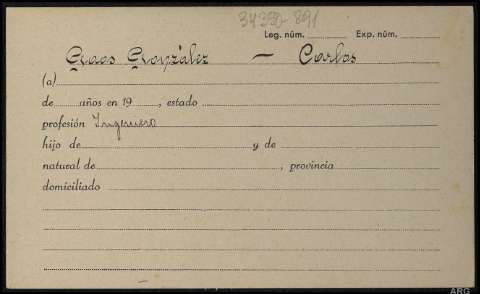 34350-891
Leg. núm. Exp. núm.
Gaos González — Carlos
(a)
de años en 19 , estado
profesión Ingeniero
hijo de y de
natural de , provincia
domiciliado
ARG